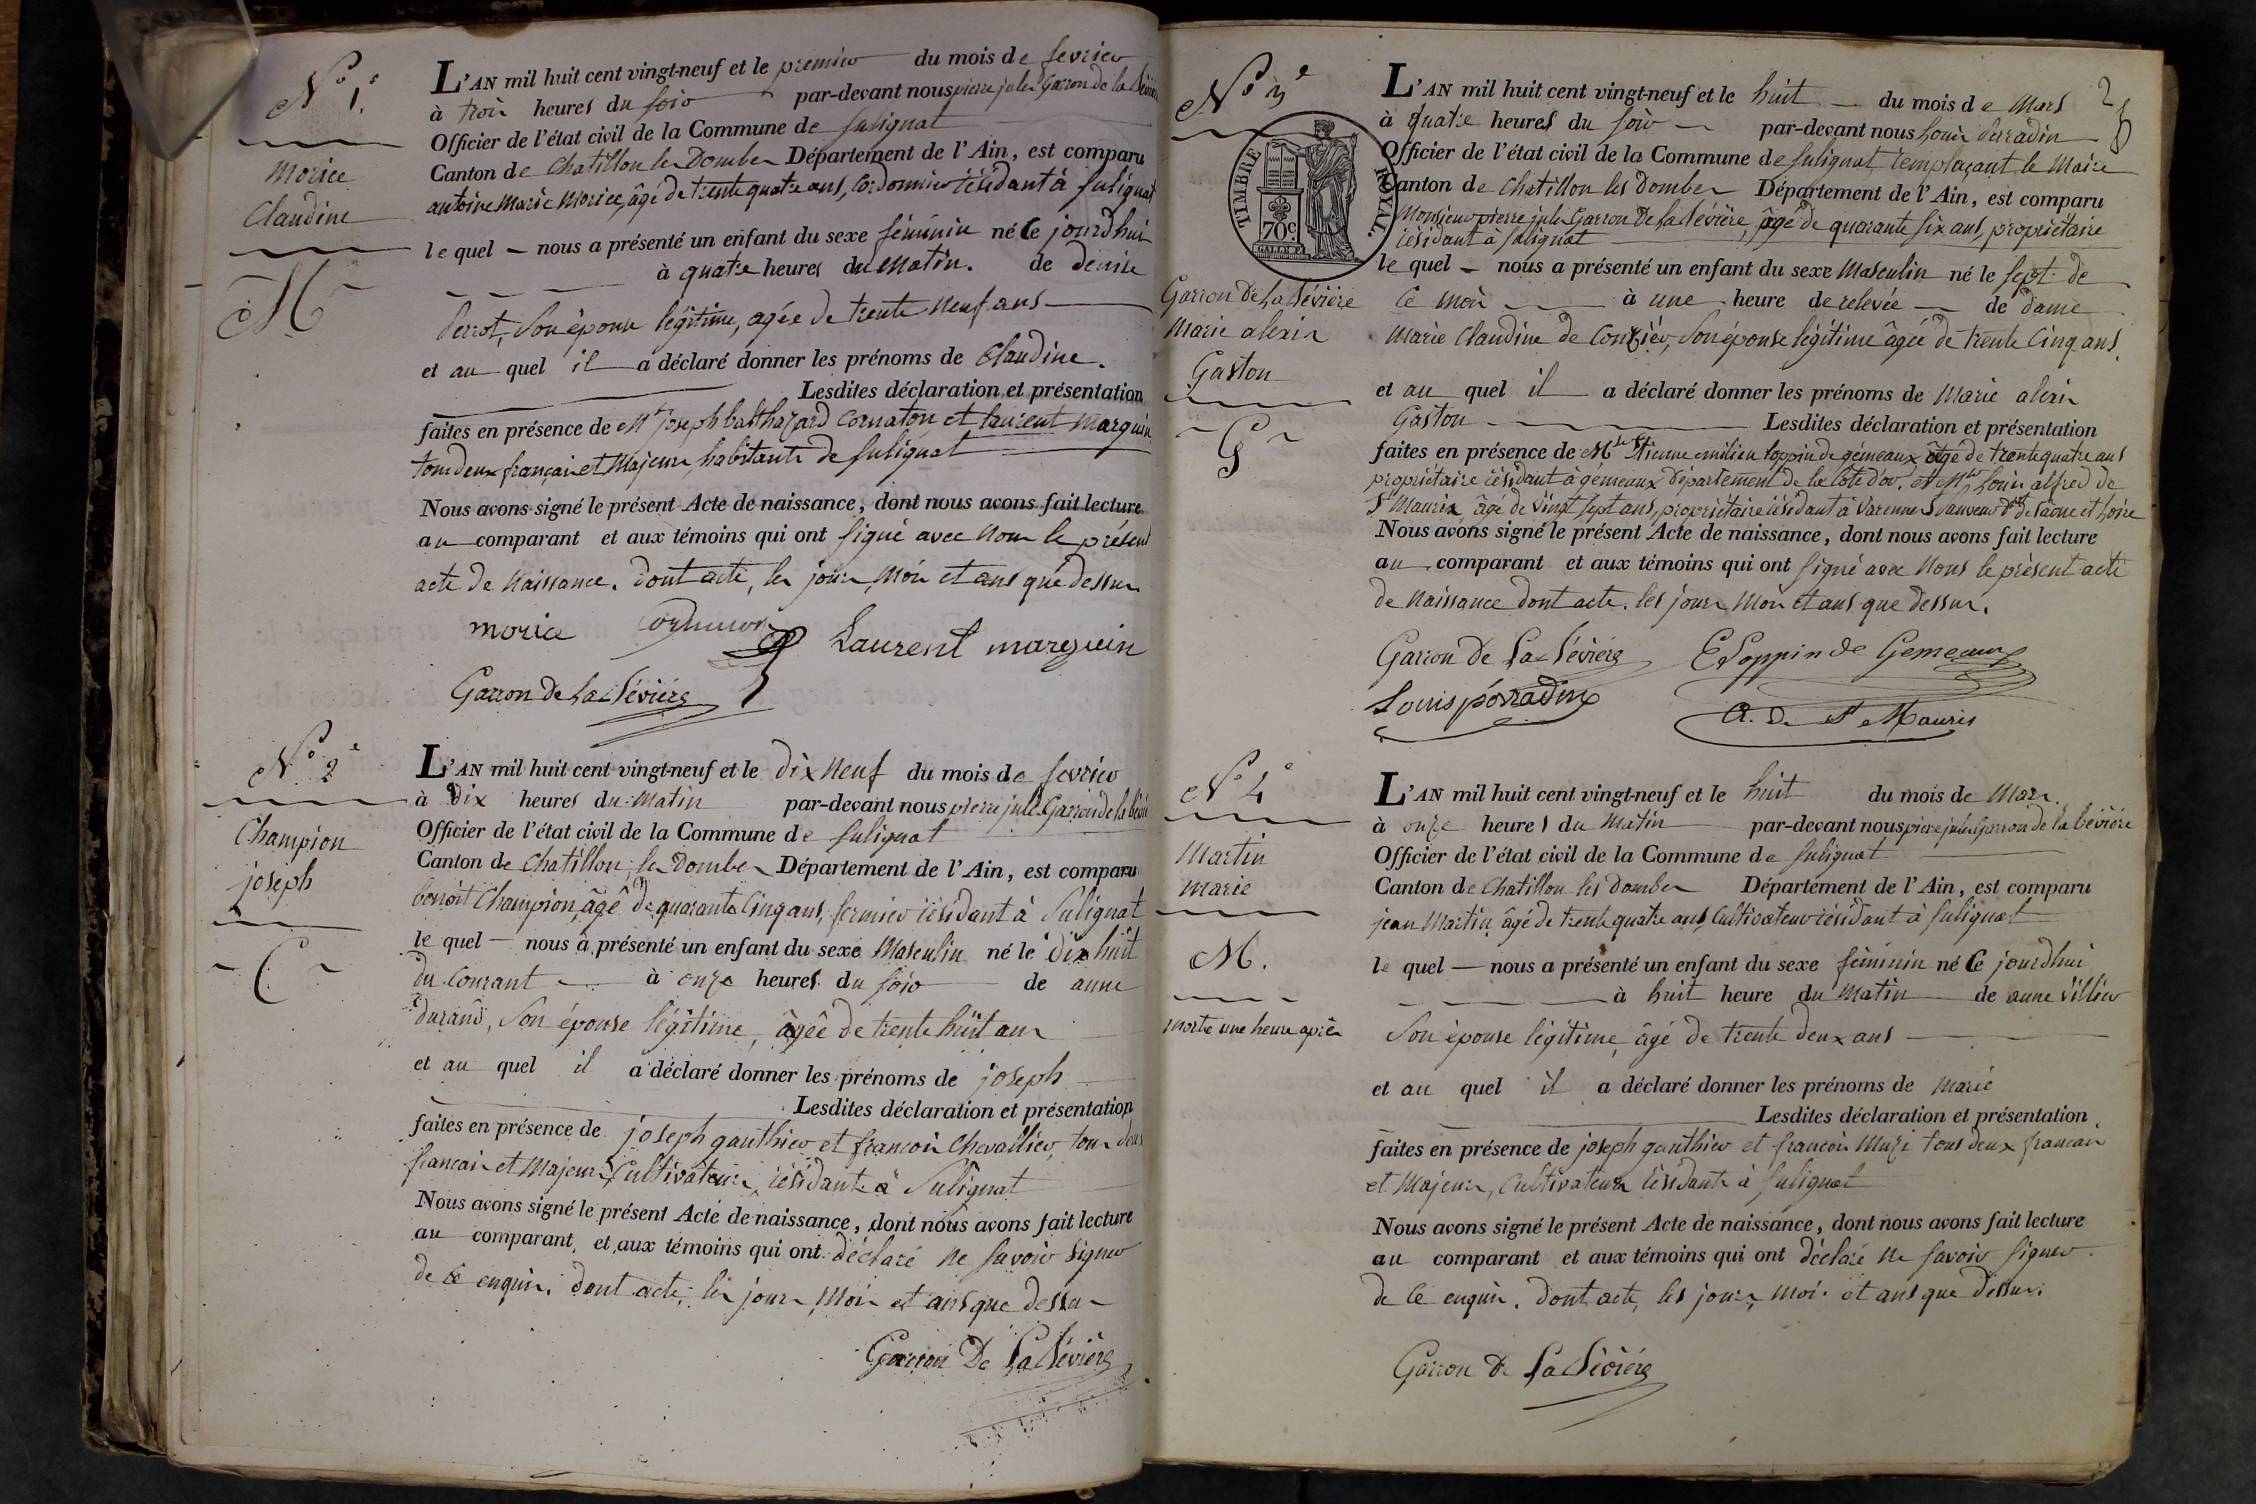 N.° 1.e
Morice
Claudine
M
L'AN mil huit cent vingt-neuf et le premier du mois de fevrier
à trois heures du soir par-devant nous pierre jules Garron de la Bévière
Officier de l'état civil de la Commune de Sulignat
Canton de Chatillon les Dombes Département de l'Ain, est comparu
antoine Marie Morice, âgé de trente quatre ans, Cordonnier résidant à Sulignat
le quel nous a présenté un enfant du sexe féminin né Ce jourdhui
à quatre heures du Matin. de denise
Perrot, Son épouse légitime, agée de trente Neuf ans
et au quel il a déclaré donner les prénoms de Claudine.
Lesdites déclaration et présentation
faites en présence de Mr joseph balthazard Cornaton et laurent Marguin
tous deux français et Majeurs, habitants de Sulignat
Nous avons signé le présent Acte de naissance, dont nous avons fait lecture
au comparant et aux témoins qui ont signé avec Nous le présent
acte de Naissance. Dont acte, les jour, Mois et ans que dessus
morice Cornaton Laurent marguin
Garron de La Bévière
N.° 2.e
Champion
joseph
C
L'AN mil huit cent vingt-neuf et le Dix Neuf du mois de fevrier
à Dix heures du Matin par-devant nous pierre jules Garron de la bévière
Officier de l'état civil de la Commune de Sulignat
Canton de Chatillon les Dombes Département de l'Ain, est comparu
benoit Champion, âgé de quarante Cinq ans, fermier résidant à Sulignat
le quel nous a présenté un enfant du sexe Masculin né le Dix huit
du Courant à onze heures du soir de anne
durand, Son épouse légitime, âgée de trente huit ans
et au quel il a déclaré donner les prénoms de joseph
Lesdites déclaration et présentation
faites en présence de joseph gauthier et francois Chevallier, tous deux
francais et Majeurs, Cultivateurs, résidants à Sulignat
Nous avons signé le présent Acte de naissance, dont nous avons fait lecture
au comparant, et aux témoins qui ont déclaré Ne Savoir Signer
de Ce enquis. Dont acte, les jour, Mois et ans que dessus
Garron De La Bévière
2
N.° 3.e
TIMBRE ROYAL.
70c.
Garron De La Bévière
Marie alexis
Gaston
G
L'AN mil huit cent vingt-neuf et le huit du mois de Mars
à quatre heures du soir par-devant nous Louis Perradin
Officier de l'état civil de la Commune de Sulignat, remplaçant le Maire
Canton de Chatillon les Dombes Département de l'Ain, est comparu
Monsieur pierre jules Garron De La Bévière, âgé de quarante six ans, propriétaire
résidant à Sulignat
le quel nous a présenté un enfant du sexe Masculin né le sept de
Ce mois à une heure de relevée de dame
Marie Claudine de Conzié, Son épouse légitime âgée de trente Cinq ans.
et au quel il a déclaré donner les prénoms de Marie alexis
Gaston Lesdites déclaration et présentation
faites en présence de Mr Etienne emilien loppin de gémeaux âgé de trente quatre ans
propriétaire résidant à gémeaux Département de la Côte d'or. et Mr Louis alfred de
St Mauris, âgé de vingt sept ans, propriétaire résidant à Varennes St Sauveur Dt de Saône et Loire
Nous avons signé le présent Acte de naissance, dont nous avons fait lecture
au comparant et aux témoins qui ont signé avec Nous le présent acte
de Naissance dont acte. les jour Mois et ans que dessus.
Garron De La Bévière E Loppin de Gemeaux
Louis pérradin A. D. St Mauris
N.° 4.e
Martin
Marie
M.
morte une heure après
L'AN mil huit cent vingt-neuf et le huit du mois de Mars.
à onze heures du Matin par-devant nous pierre jules Garron de la bévière
Officier de l'état civil de la Commune de Sulignat
Canton de Chatillon les dombes Département de l'Ain, est comparu
jean Martin, âgé de trente quatre ans, Cultivateur résidant à Sulignat
le quel nous a présenté un enfant du sexe féminin né Ce jourdhui
à huit heure du Matin de anne Villier
Son épouse légitime, âgé de trente deux ans
et au quel il a déclaré donner les prénoms de Marie
Lesdites déclaration et présentation
faites en présence de joseph gauthier et francois Muzi tous deux francais
et Majeurs, Cultivateurs résidants à Sulignat
Nous avons signé le présent Acte de naissance, dont nous avons fait lecture
au comparant et aux témoins qui ont déclaré Ne Savoir Signer.
de Ce enquis. Dont acte, les jour, Mois et ans que Dessus.
Garron De La Bévière